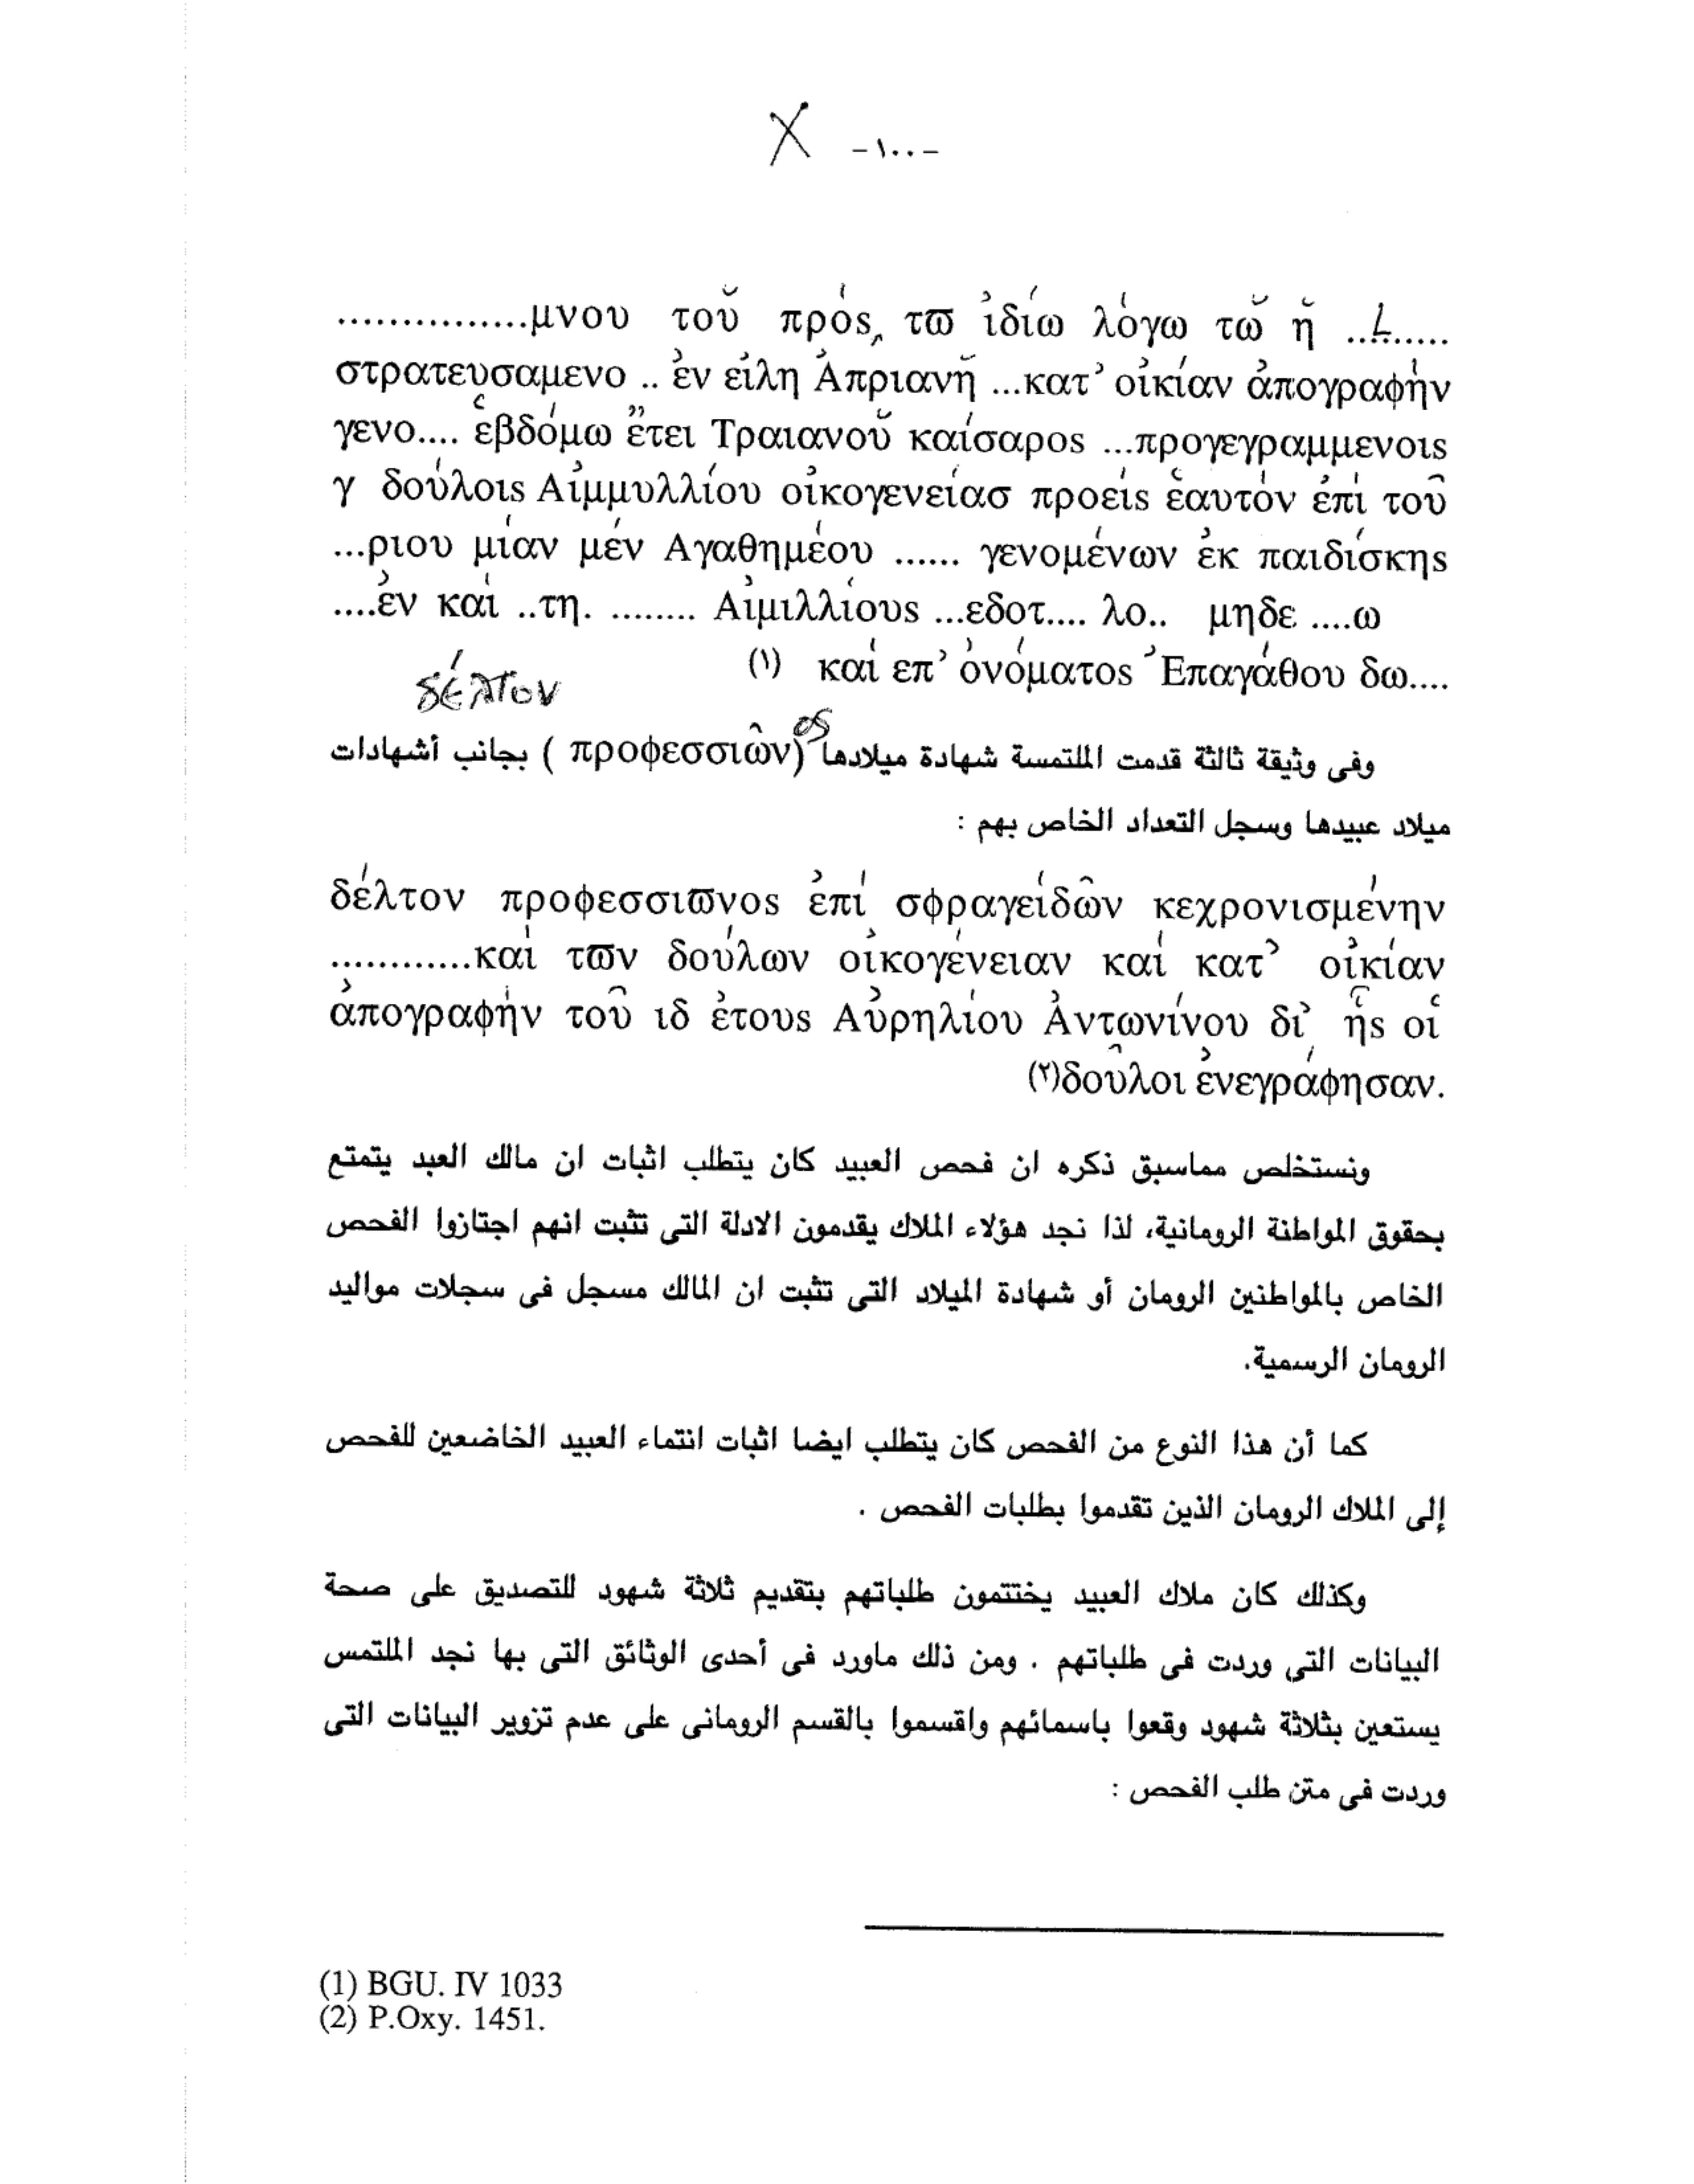 X -١٠٠-
...............μνου τοῦ πρός, τω ἰδίω λόγω τῶ ῆ ..L.......
στρατευσαμενο .. ἐν εἰλη Ἀπριανῆ ...κατ’ οἰκίαν ἀπογραφήν
γενο.... ἑβδόμω ἔτει Τραιανοῦ καίσαρος ...προγεγραμμενοις
γ δούλοις Αἰμμυλλίου οἰκογενείασ προείς ἑαυτόν ἐπί τοῦ
...ριου μίαν μέν Αγαθημέου ...... γενομένων ἐκ παιδίσκης
....ἐν καί ..τη. ........ Αἰμιλλίους ...εδοτ.... λο.. μηδε ....ω
(١) καί επ’ ὀνόματος Ἐπαγάθου δω....
δέλτον
وفى وثيقة ثالثة قدمت الملتمسة شهادة ميلادها (προφεσσιῶν ος) بجانب أشهادات
ميلاد عبيدها وسجل التعداد الخاص بهم :
δέλτον προφεσσιωνος ἐπί σφραγείδῶν κεχρονισμένην
............καί των δούλων οἰκογένειαν καί κατ’ οἰκίαν
ἀπογραφήν τοῦ ιδ ἐτους Αὐρηλίου Ἀντωνίνου δι’ ἧς οἱ
(٢)δοῦλοι ἐνεγράφησαν.
ونستخلص مماسبق ذكره ان فحص العبيد كان يتطلب اثبات ان مالك العبد يتمتع
بحقوق المواطنة الرومانية، لذا نجد هؤلاء الملاك يقدمون الادلة التى تثبت انهم اجتازوا الفحص
الخاص بالمواطنين الرومان أو شهادة الميلاد التى تثبت ان المالك مسجل فى سجلات مواليد
الرومان الرسمية.
كما أن هذا النوع من الفحص كان يتطلب ايضا اثبات انتماء العبيد الخاضعين للفحص
إلى الملاك الرومان الذين تقدموا بطلبات الفحص .
وكذلك كان ملاك العبيد يختتمون طلباتهم بتقديم ثلاثة شهود للتصديق على صحة
البيانات التى وردت فى طلباتهم . ومن ذلك ماورد فى أحدى الوثائق التى بها نجد الملتمس
يستعين بثلاثة شهود وقعوا باسمائهم واقسموا بالقسم الرومانى على عدم تزوير البيانات التى
وردت فى متن طلب الفحص :
(1) BGU. IV 1033
(2) P.Oxy. 1451.